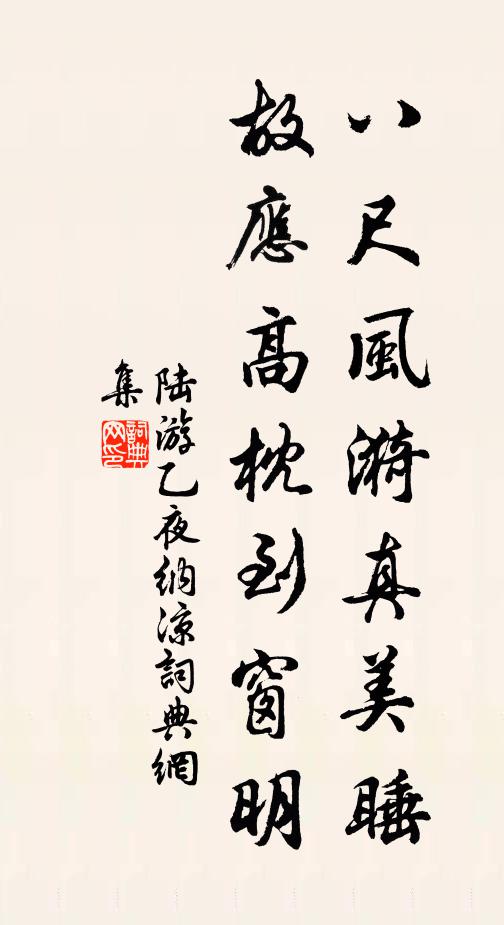 八尺風漪真美睡
故應高枕到窗明
陸游乙夜納涼詞典網
集
詞典
网印